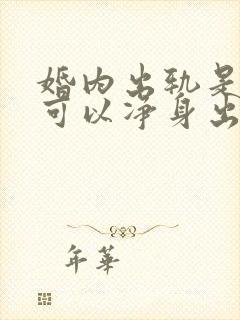 婚内出轨是
可以净身出
年華